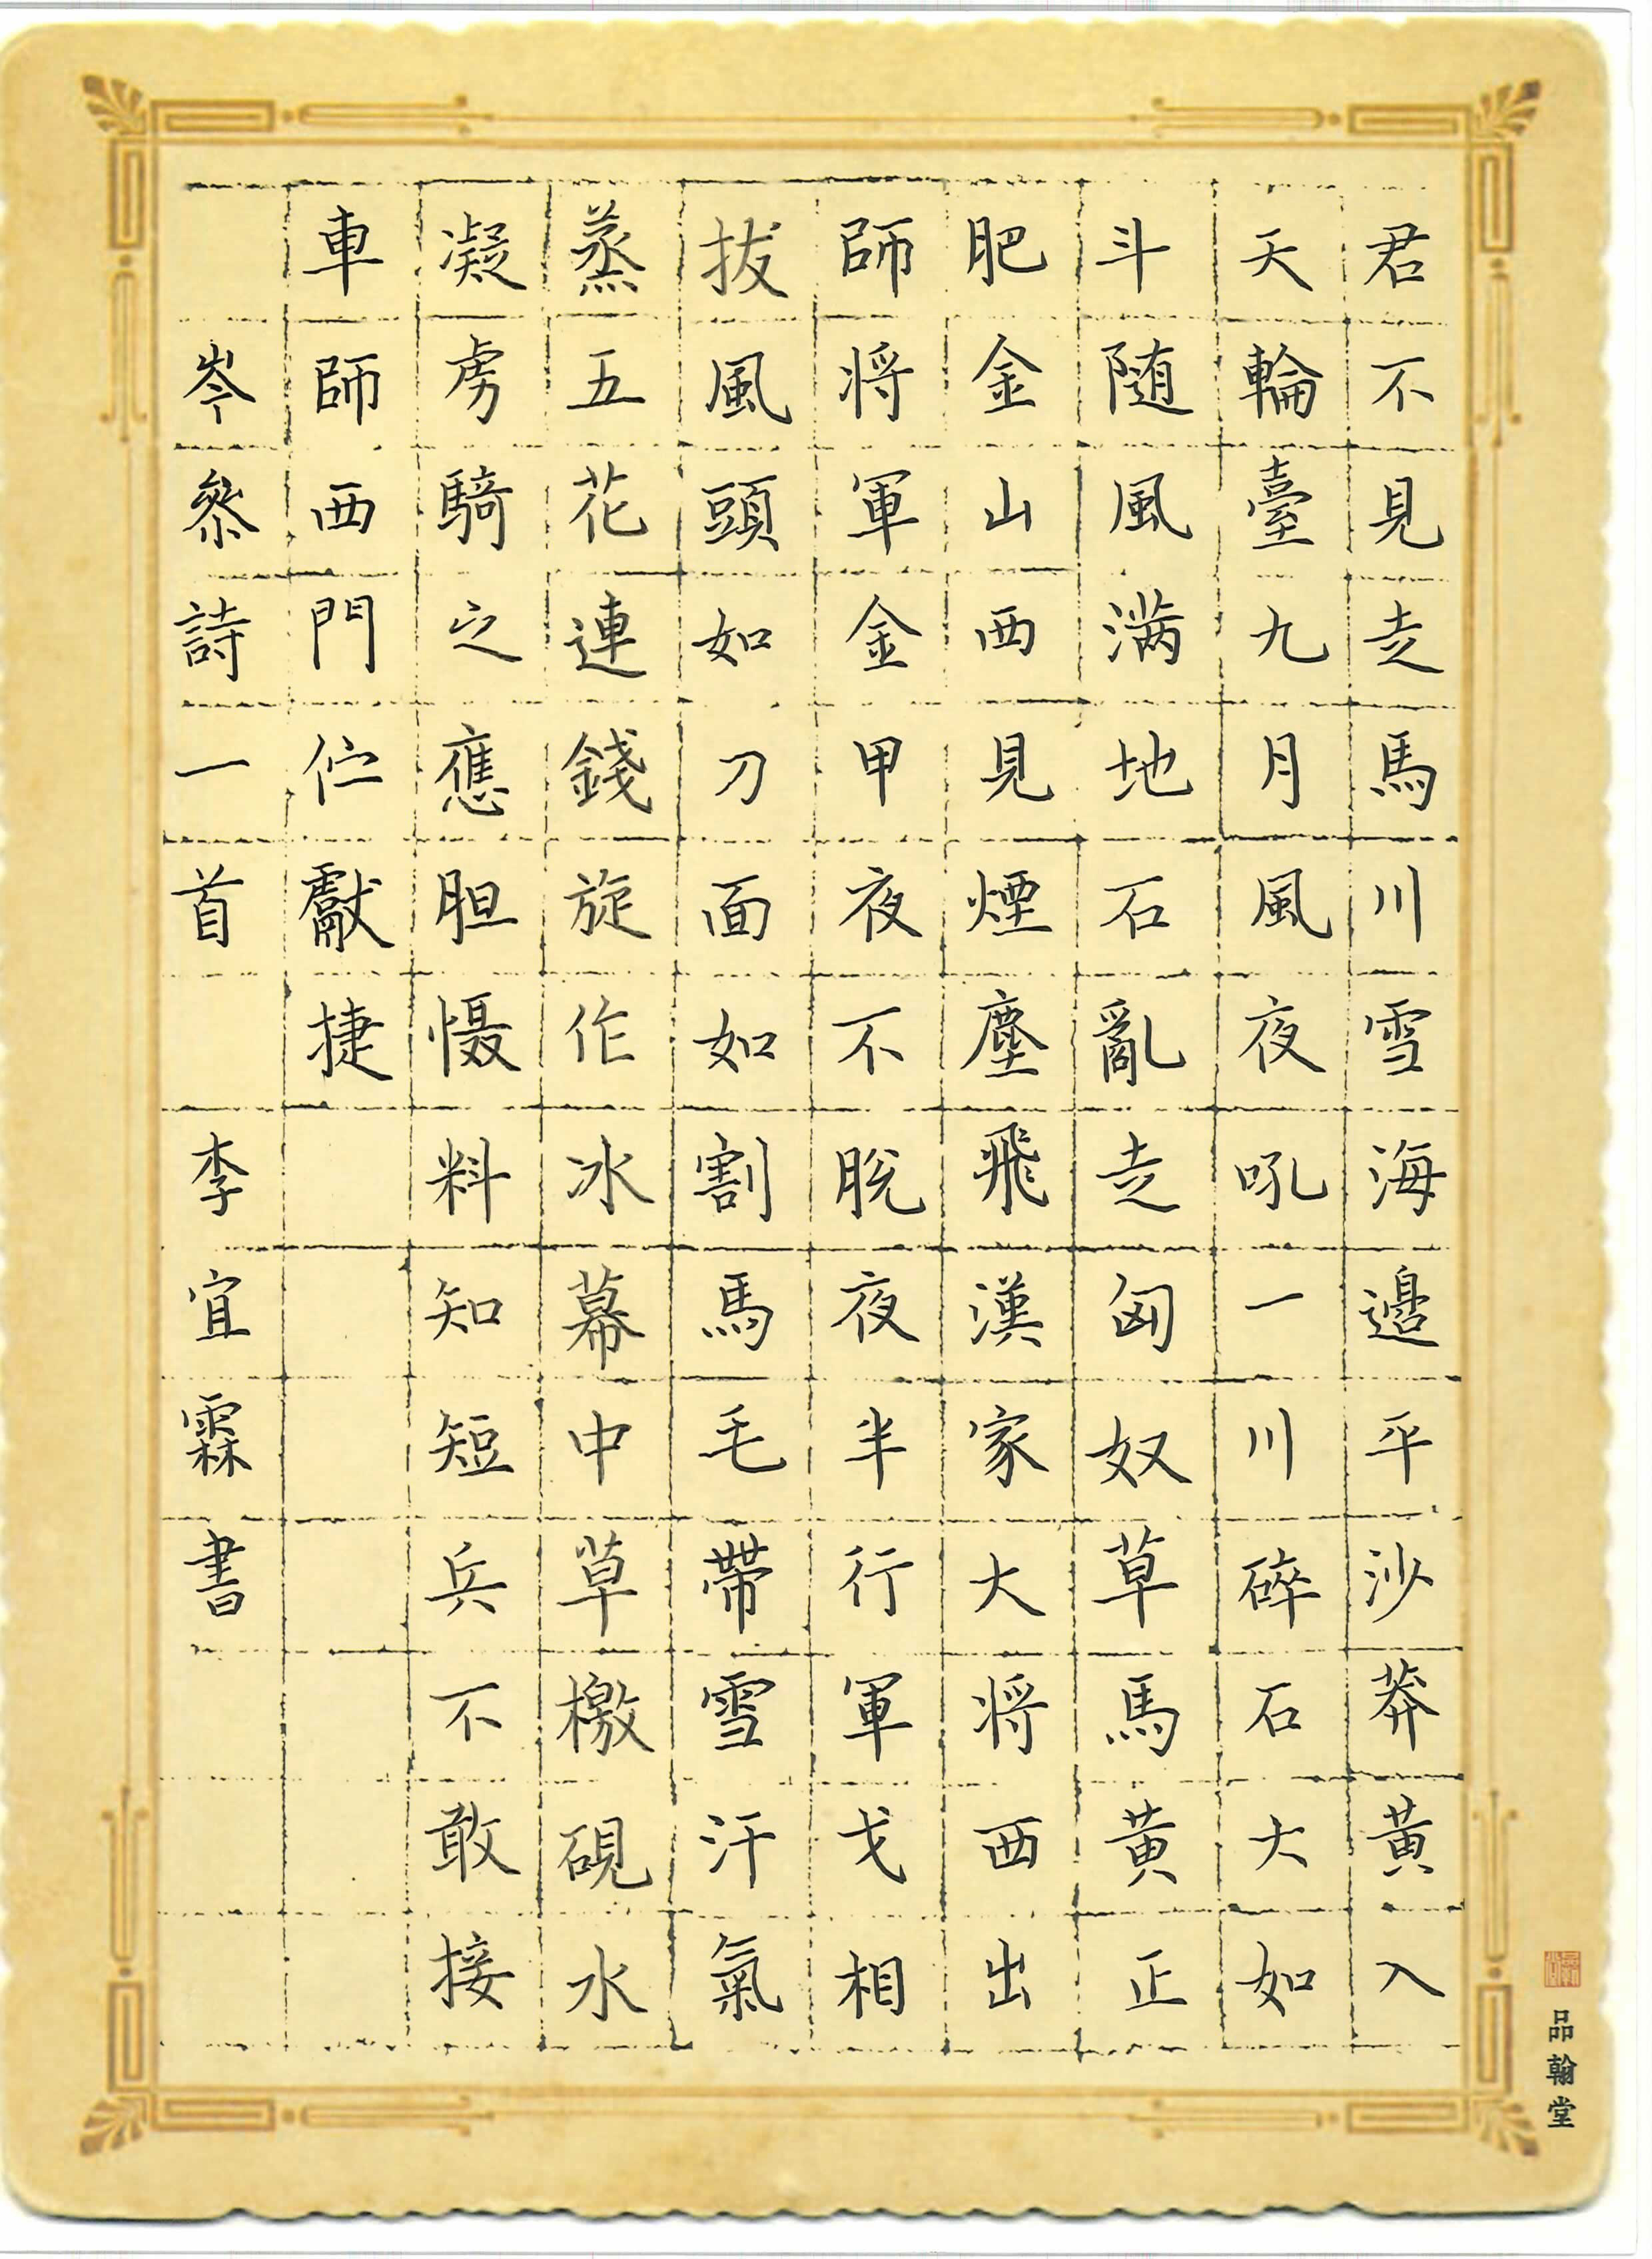 君不見走馬川雪海邊平沙莽黄入
天輪臺九月風夜吼一川碎石大如
斗随風满地石亂走匈奴草馬黄正
肥金山西見煙塵飛漢家大将西出
師将軍金甲夜不脱夜半行軍戈相
拔風頭如刀面如割馬毛帶雪汗氣
蒸五花連錢旋作冰幕中草檄硯水
凝虏騎之應胆慑料知短兵不敢接
車師西門伫獻捷
岑參詩一首 李宜霖書
品翰堂